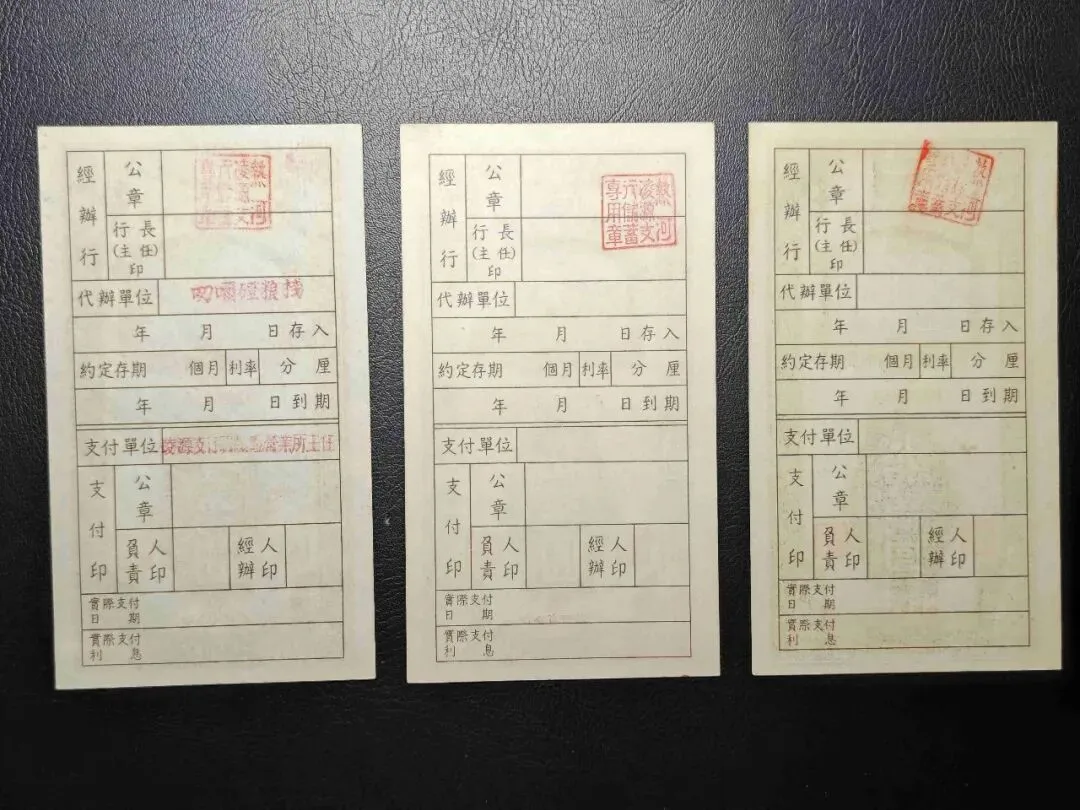 經辦行
公章
熱河
凌源支
行儲蓄
專用章
行長
(主任)
印
代辦單位
叨嘣磴糧棧
年 月 日存入
約定存期 個月 利率 分 厘
年 月 日到期
支付單位 凌源支行 營業所主任
支付印
公章
負責人印
經辦人印
實際支付
日期
實際支付
利息
經辦行
公章
熱河
凌源支
行儲蓄
專用章
行長
(主任)
印
代辦單位
年 月 日存入
約定存期 個月 利率 分 厘
年 月 日到期
支付單位
支付印
公章
負責人印
經辦人印
實際支付
日期
實際支付
利息
經辦行
公章
熱河
行長
(主任)
印
代辦單位
年 月 日存入
約定存期 個月 利率 分 厘
年 月 日到期
支付單位
支付印
公章
負責人印
經辦人印
實際支付
日期
實際支付
利息